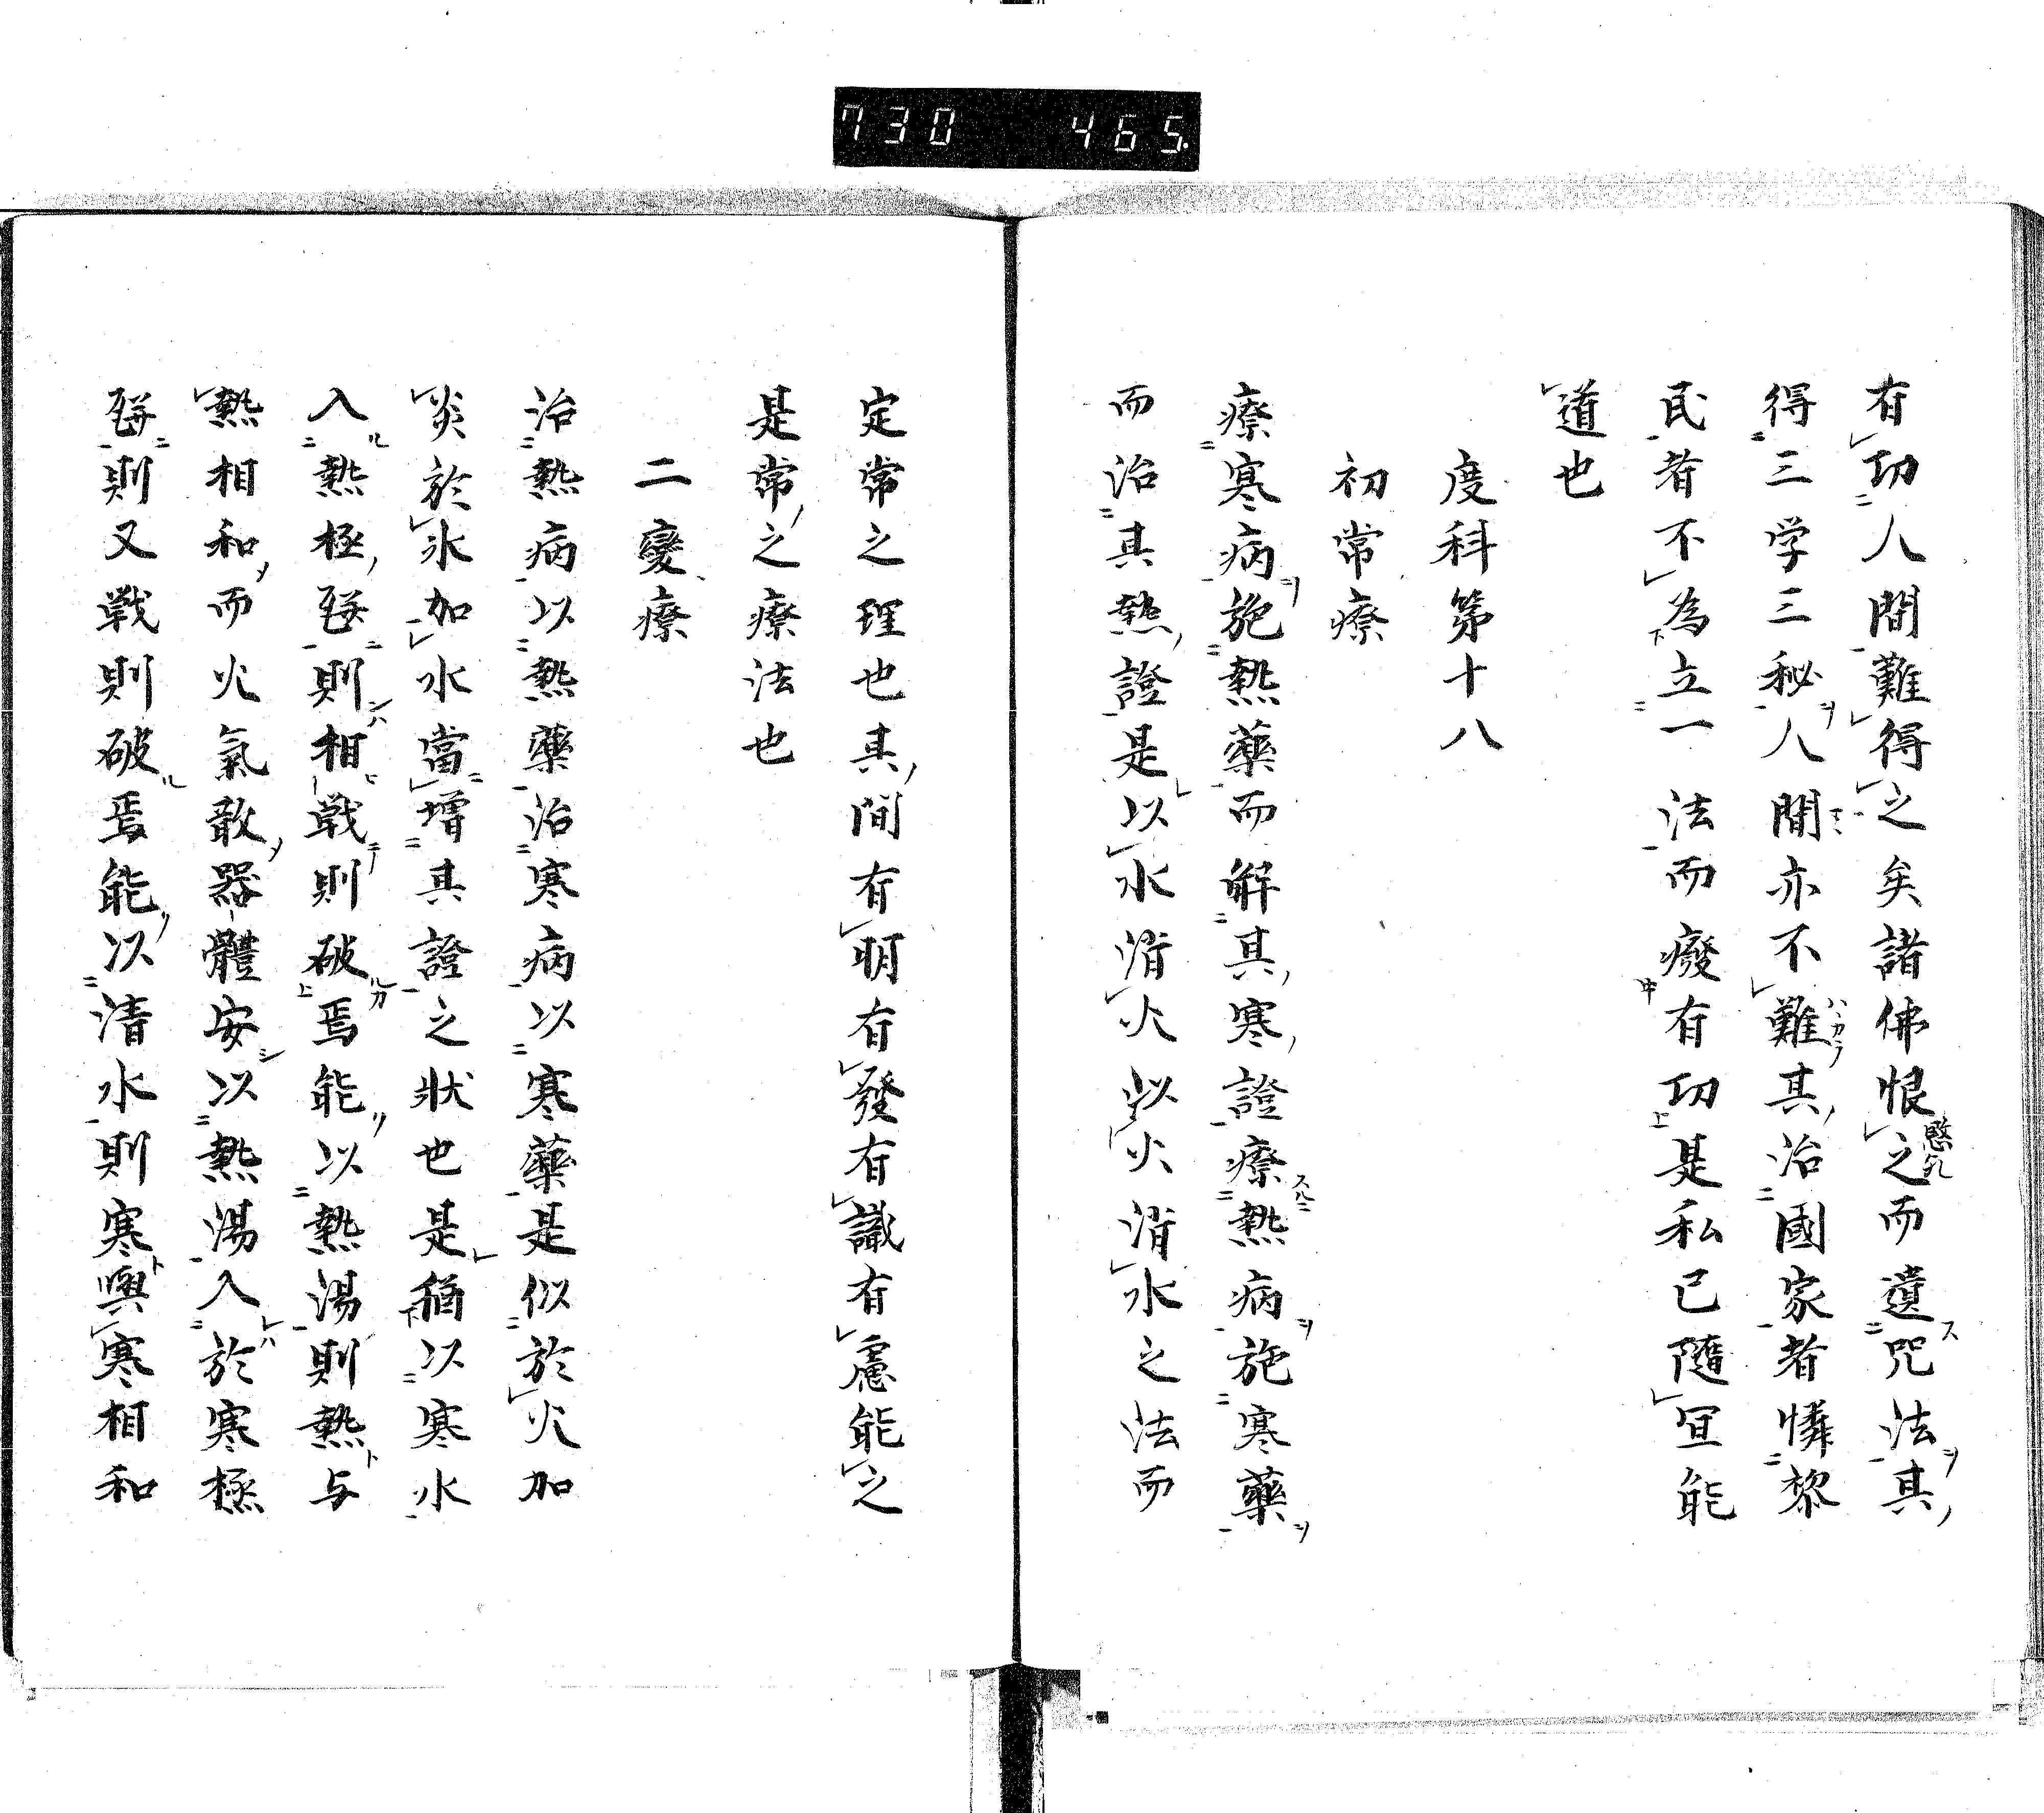 730 465
有功人間難得之矣諸佛恨之而遺咒法其
得三学三秘人間亦不難其治國家者憐黎
民者不為立一法而癈有功是私已隨宜能
道也
度科第十八
初常療
療寒病施熱藥而解其寒證療熱病施寒藥
而治其熱證是以水消火以火消水之法而
定常之理也其間有明有發有識有慮能之
是常之療法也
二變療
治熱病以熱藥治寒病以寒藥是似於火加
炎於氷加水當增其證之狀也是猶以寒水
入熱極則相戦則破焉能以熱湯則熱与
熱相和而火氣散器體安以熱湯入於寒極
則又戦則破焉能以清水則寒與寒相和